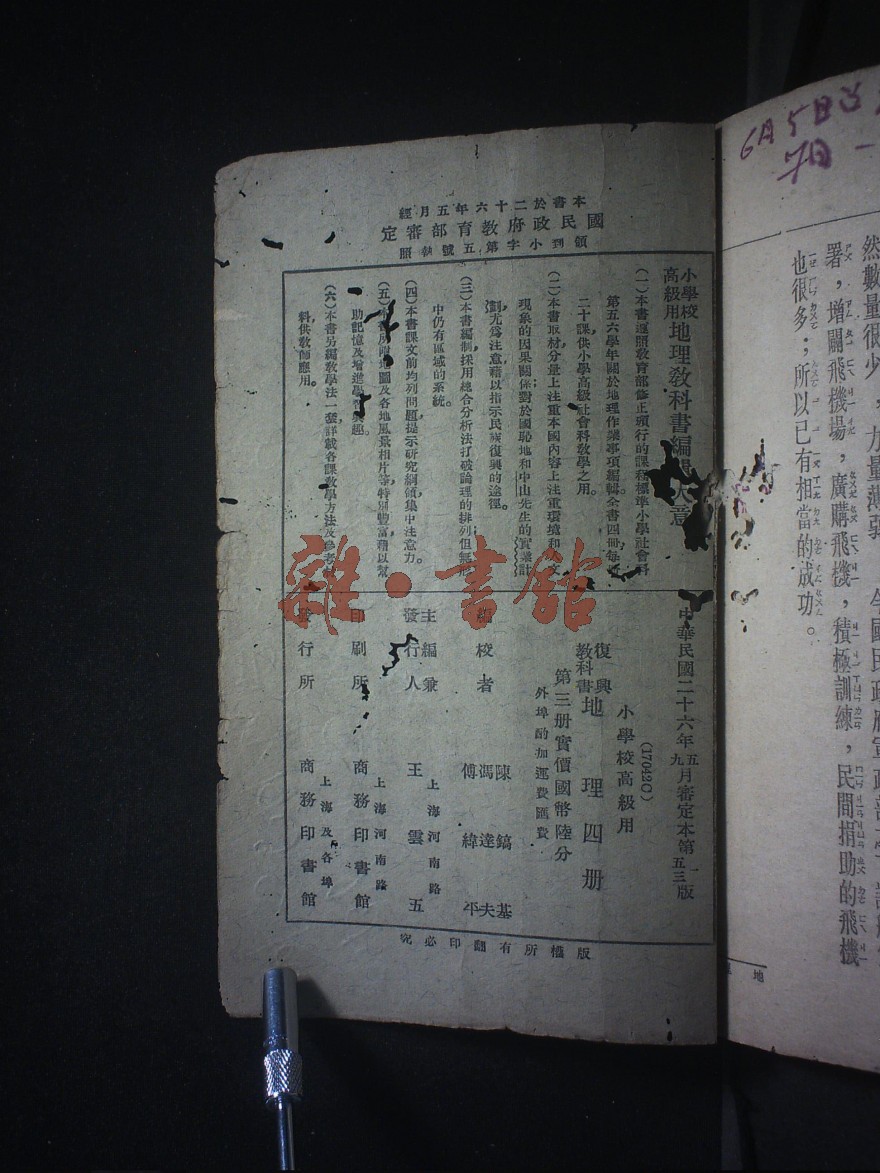 6A 5B
7日
然數量很少，力量薄弱
署，增闢飛機場，廣購飛機，積極訓練，民間捐助的飛機
也很多；所以已有相當的成功。
地
本書於二十六年五月經
國民政府教育部審定
領到小字第五號執照
小學校高級用地理教科書編大意
（一）本書遵照教育部修正頒行的課程標準小學社會科
第五六學年關於地理作業事項編輯全書四冊每冊
二十課供小學高級社會科教學之用。
（二）本書取材分量上注重本國內容上注重環境和人文
現象的因果關係對於國恥地和中山先生的實業計
劃尤為注意藉以指示民族復興的途徑。
（三）本書編制採用總合分析法打破論理的排列但無形
中仍有區域的系統。
（四）本書課文前均列問題，提示研究綱領，集中注意力。
（五）附地圖及各地風景相片等特別豐富藉以幫
助記憶及增進學趣。
（六）本書另編教學法一套詳載各課教學方法及參考材
料供教師應用。
中華民國二十六年五九月審定本第一五三版
（17042C）
小學校高級用
復興教科書地理四册
第三册實價國幣陸分
外埠酌加運費匯費
編校者 陳鎬基 馮達夫 傅緯平
主編兼發行人 上海河南路 王雲五
印刷所 上海河南路 商務印書館
發行所 上海及各埠 商務印書館
版權所有翻印必究
雜·書館